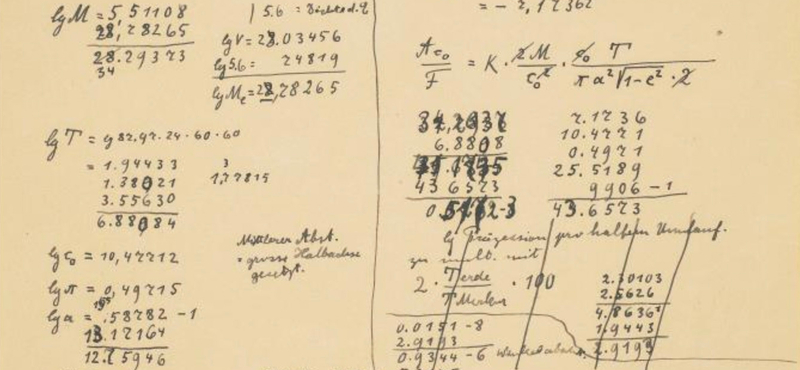 lg M = 5,51108
28,78265
28.29373
34
5.6 = Dichte d. E
lg V = 28.03456
lg 5.6 = 74819
lg M_E = 28,78265
lg T = lg 87.97.24.60.60
= 1.94433
1.38021
3.55630
6.88084
3
1,77815
lg c₀ = 10,47712
lg π = 0,49715
lg a = .58782 - 1
13.17164
12.75946
Mittlerer Abst.
= grosse Halbachse
gesetzt.
= - 2,17362
A c₀ / F = K · 2 M / c₀² · c₀ T / π a² √1-e² · 2
6.8808
43 6573
7.1736
10.4771
0.4971
25.5189
9906 - 1
43.6573
lg Präzession pro halben Umlauf.
zu mult. mit
2 · T Erde / T Merkur · 100
2.30103
2.5626
4.8636
1.9443
2.9193
0.0151 - 8
2.9193
0.9344 - 6